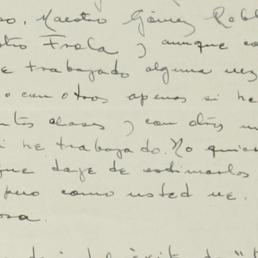 so, Maestro Gómez Robl
stro Frola y aunque co
e trabajado alguna vez
o con otros apenas si he
ntas clases y con otros m
si he trabajado. No quier
que deje de estimarlos
pero como usted ve.
osa.